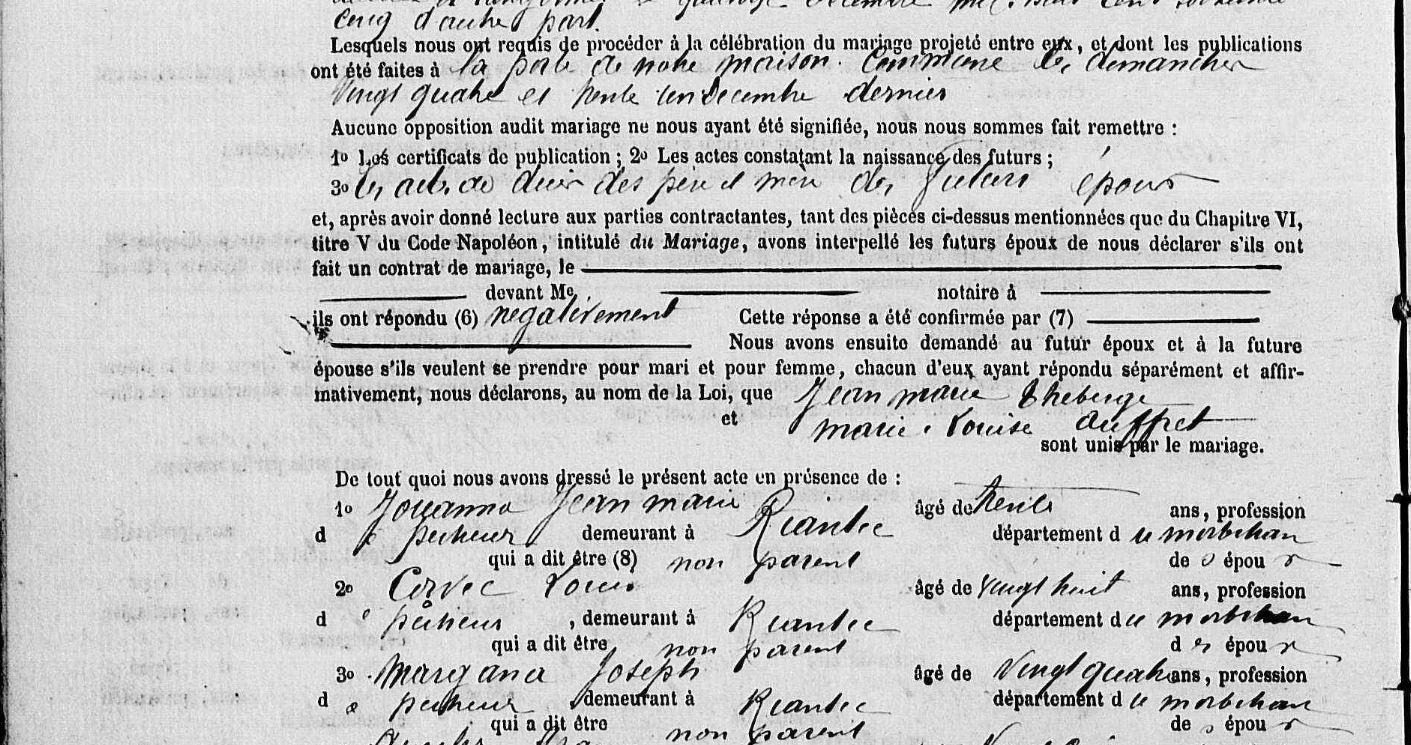 cinq d'autre part.
Lesquels nous ont requis de procéder à la célébration du mariage projeté entre eux, et dont les publications
ont été faites à la porte de notre maison Commune les dimanches
Vingt quatre et trente un Decembre dernier
Aucune opposition audit mariage ne nous ayant été signifiée, nous nous sommes fait remettre :
1o Les certificats de publication ; 2o Les actes constatant la naissance des futurs ;
3o les actes de décès des père et mère des futurs époux
et, après avoir donné lecture aux parties contractantes, tant des pièces ci-dessus mentionnées que du Chapitre VI,
titre V du Code Napoléon, intitulé du Mariage, avons interpellé les futurs époux de nous déclarer s'ils ont
fait un contrat de mariage, le
devant Me notaire à
ils ont répondu (6) négativement Cette réponse a été confirmée par (7)
Nous avons ensuite demandé au futur époux et à la future
épouse s'ils veulent se prendre pour mari et pour femme, chacun d'eux ayant répondu séparément et affir-
mativement, nous déclarons, au nom de la Loi, que Jean marie Theberge
et marie Louise Auffret
sont unis par le mariage.
De tout quoi nous avons dressé le présent acte en présence de :
1o Jouanno Jean marie âgé de trente ans, profession
d e pêcheur demeurant à Riantec département d u morbihan
qui a dit être (8) non parent des époux
2o Corvec Louis âgé de vingt huit ans, profession
d e pêcheur , demeurant à Riantec département d u morbihan
qui a dit être non parent des époux
3o Margana Joseph âgé de Vingt quatre ans, profession
d e pêcheur demeurant à Riantec département d u morbihan
qui a dit être non parent des époux